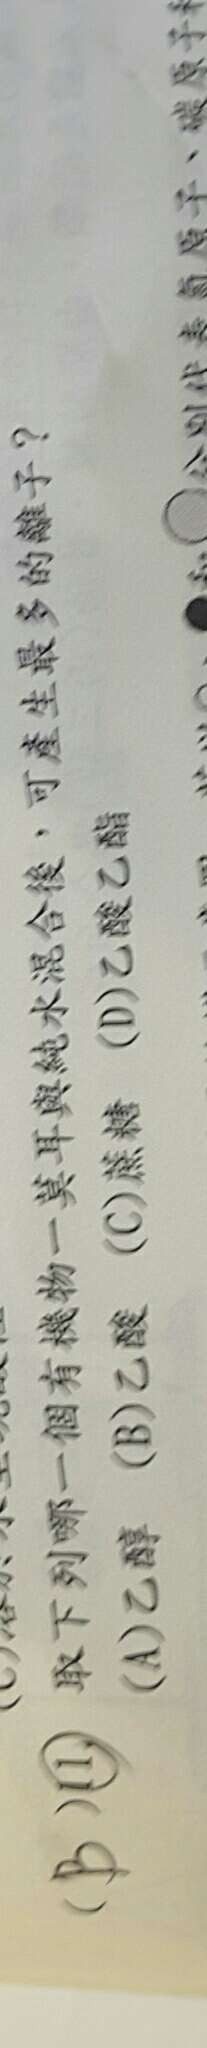 (B)11. 取下列哪一個有機物一莫耳與純水混合後，可產生最多的離子？
(A)乙醇 (B)乙酸 (C)蔗糖 (D)乙酸乙酯
分別代表氫原子、碳原子